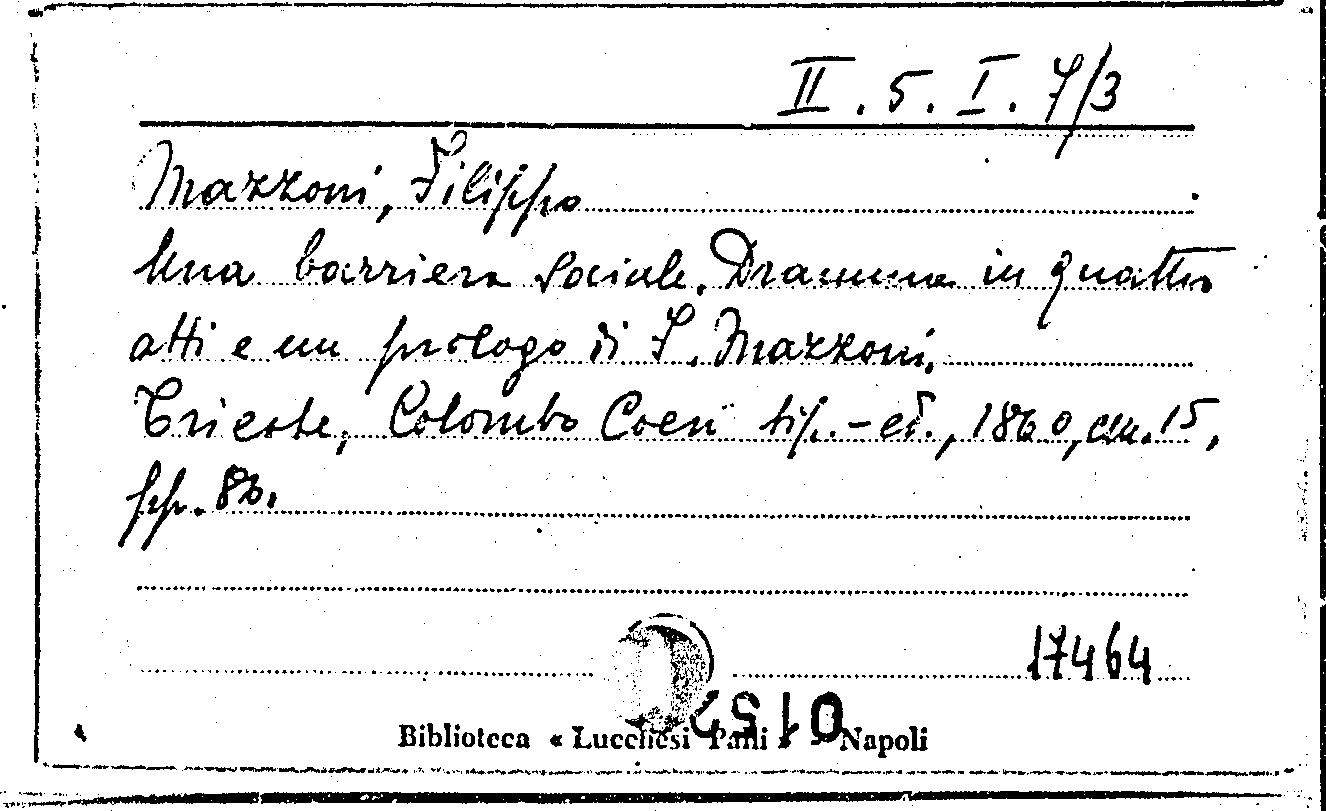 II. 5. I. 7/3
Mazzoni, Filippo
Una barriera sociale. Dramma in quattro
atti e un prologo di F. Mazzoni.
Trieste, Colombo Coen tip.-ed., 1860, cm. 15,
pp. 86.
17464
Biblioteca « Lucchesi Palli » Napoli